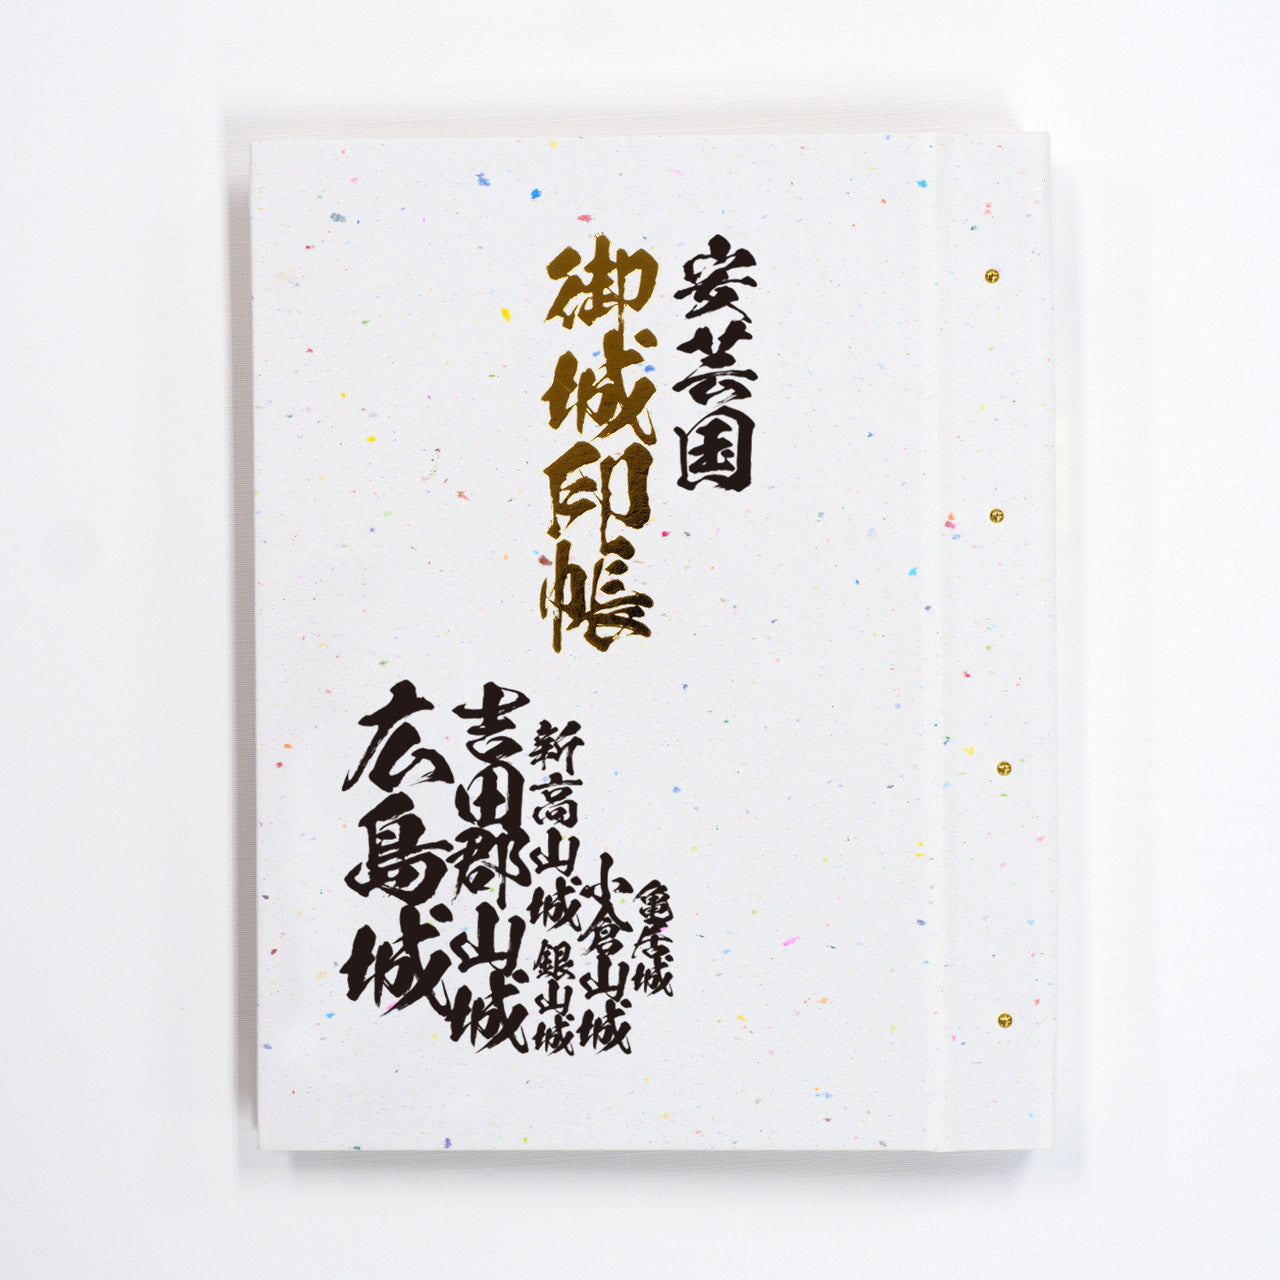 安芸国
御城印帳
亀居城
小倉山城
新高山城
銀山城
吉田郡山城
広島城